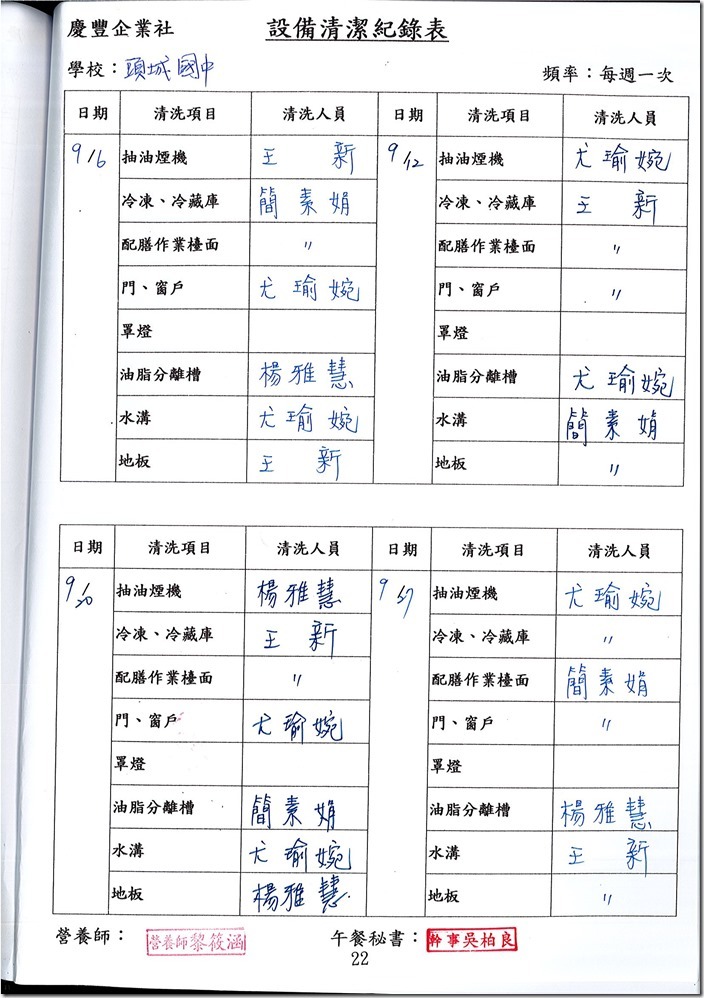 慶豐企業社 設備清潔紀錄表
學校：頭城國中 頻率：每週一次
日期 清洗項目 清洗人員 日期 清洗項目 清洗人員
9/6 抽油煙機 王 新 9/12 抽油煙機 尤瑜婉
冷凍、冷藏庫 簡素娟 冷凍、冷藏庫 王 新
配膳作業檯面 〃 配膳作業檯面 〃
門、窗戶 尤瑜婉 門、窗戶 〃
罩燈 罩燈
油脂分離槽 楊雅慧 油脂分離槽 尤瑜婉
水溝 尤瑜婉 水溝 簡素娟
地板 王 新 地板 〃
日期 清洗項目 清洗人員 日期 清洗項目 清洗人員
9/20 抽油煙機 楊雅慧 9/27 抽油煙機 尤瑜婉
冷凍、冷藏庫 王 新 冷凍、冷藏庫 〃
配膳作業檯面 〃 配膳作業檯面 簡素娟
門、窗戶 尤瑜婉 門、窗戶 〃
罩燈 罩燈
油脂分離槽 簡素娟 油脂分離槽 楊雅慧
水溝 尤瑜婉 水溝 王 新
地板 楊雅慧 地板 〃
營養師： 營養師黎筱涵 午餐秘書： 幹事吳柏良
22